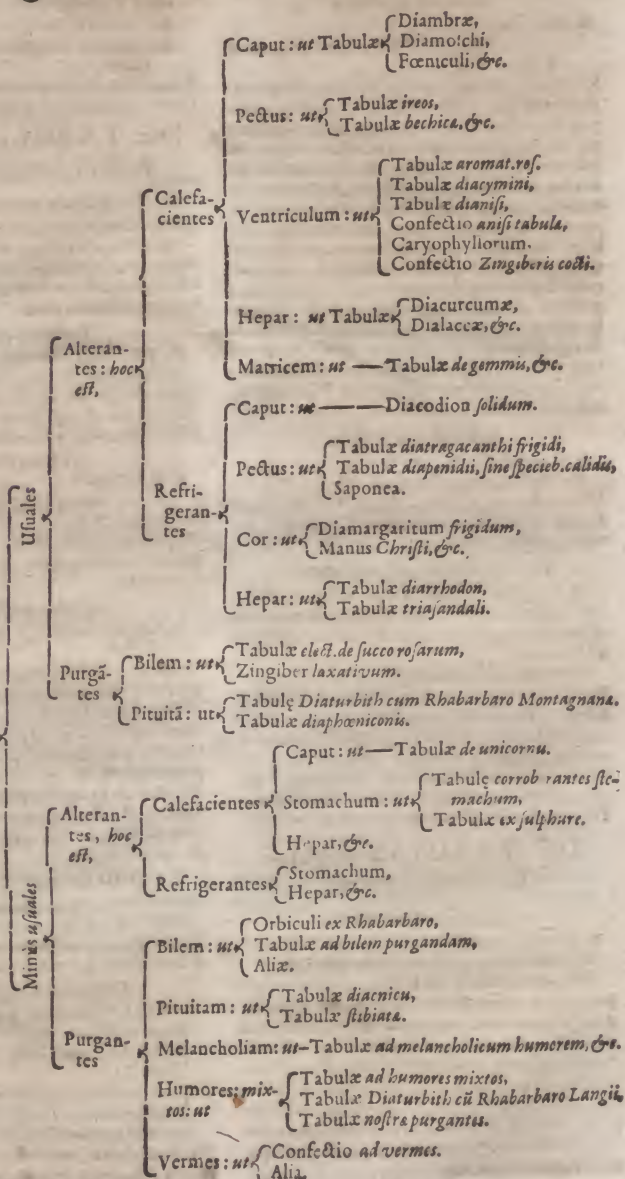 Usuales
Alteran-
tes: hoc
est,
Calefa-
cientes
Caput: ut Tabulæ
Diambræ,
Diamoschi,
Fœniculi, &c.
Pectus: ut
Tabulæ ireos,
Tabulæ bechicæ, &c.
Ventriculum: ut
Tabulæ aromat. ros.
Tabulæ diacymini,
Tabulæ dianisi,
Confectio anisi tabula,
Caryophyllorum.
Confectio Zingiberis cocti.
Hepar: ut Tabulæ
Diacurcumæ,
Dialaccæ, &c.
Matricem: ut — Tabulæ de gemmis, &c.
Refri-
geran-
tes
Caput: ut — Diacodion solidum.
Pectus: ut
Tabulæ diatragacanthi frigidi,
Tabulæ diapenidii, sine specieb. calidis,
Saponea.
Cor: ut
Diamargaritum frigidum,
Manus Christi, &c.
Hepar: ut
Tabulæ diarrhodon,
Tabulæ triasandali.
Purgã-
tes
Bilem: ut
Tabulæ elect. de succo rosarum,
Zingiber laxativum.
Pituitã: ut
Tabulę Diaturbith cum Rhabarbaro Montagnanæ.
Tabulæ diaphœniconis.
Minùs usuales
Alteran-
tes, hoc
est,
Calefacientes
Caput: ut — Tabulæ de unicornu.
Stomachum: ut
Tabulę corrob rantes sto-
machum,
Tabulæ ex sulphure.
Hepar, &c.
Refrigerantes
Stomachum,
Hepar, &c.
Purgan-
tes
Bilem: ut
Orbiculi ex Rhabarbaro,
Tabulæ ad bilem purgandam,
Aliæ.
Pituitam: ut
Tabulæ diacnicu,
Tabulæ stibiatæ.
Melancholiam: ut – Tabulæ ad melancholicum humorem, &c.
Humores: mix-
tos: ut
Tabulæ ad humores mixtos,
Tabulæ Diaturbith cũ Rhabarbaro Langii,
Tabulæ nostræ purgantes.
Vermes: ut
Confectio ad vermes.
Alia.